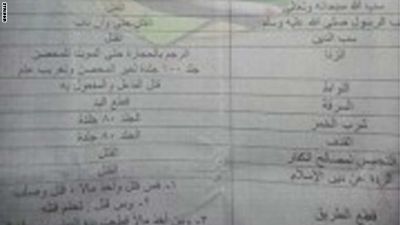 سب الله سبحانه وتعالى القتل
سب الرسول صلى الله عليه وسلم القتل حتى وإن تاب
سب الدين القتل
الزنا الرجم بالحجارة حتى الموت للمحصن
جلد ١٠٠ جلدة لغير المحصن وتغريب عام
اللواط قتل الفاعل والمفعول به
السرقة قطع اليد
شرب الخمر الجلد ٨٠ جلدة
القذف الجلد ٨٠ جلدة
التجسس لصالح الكفار القتل
الردة عن دين الإسلام القتل
قطع الطريق ١- من قتل وأخذ مالا، قتل وصلب
٢- ومن قتل، تحتم قتله
٣- ومن أخذ مالا قطعت